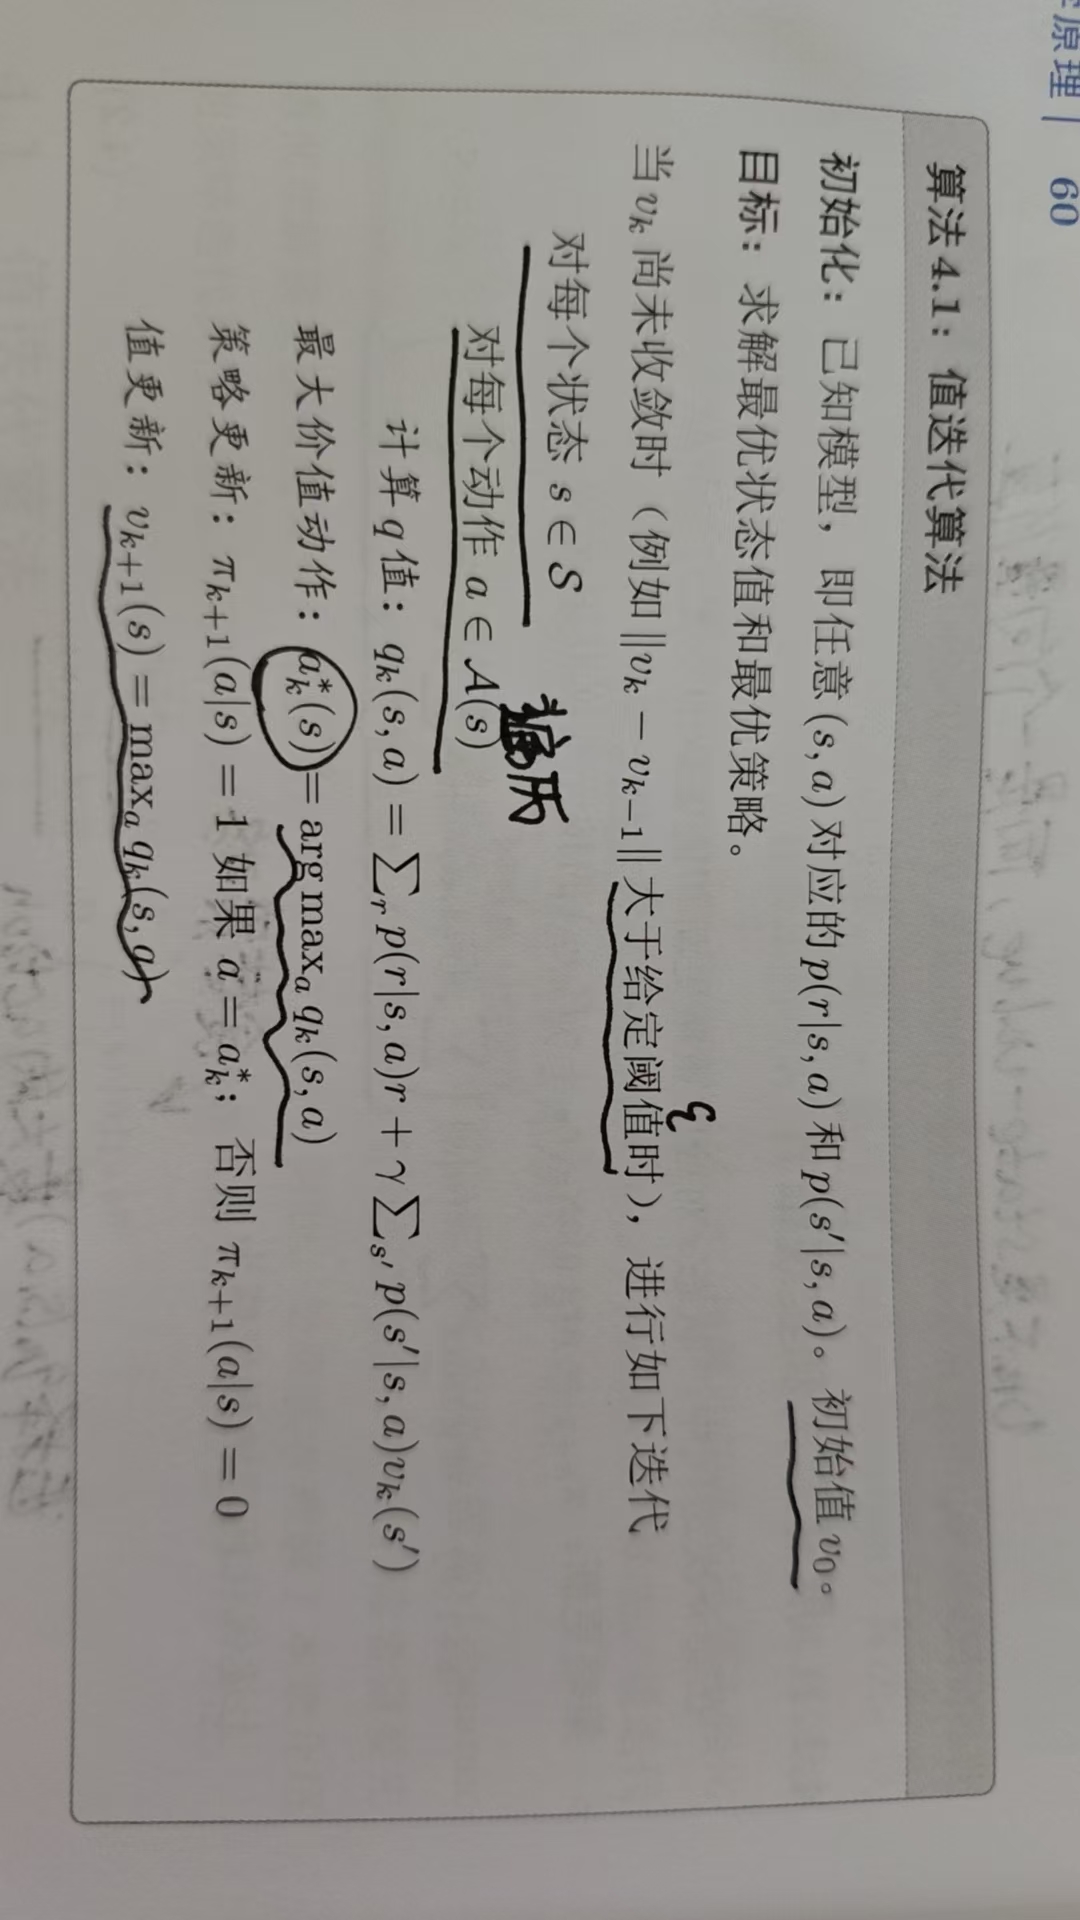 原理 | 60
算法 4.1：值迭代算法
初始化：已知模型，即任意 (s, a) 对应的 p(r|s, a) 和 p(s′|s, a)。初始值 v₀。
目标：求解最优状态值和最优策略。
当 vₖ 尚未收敛时（例如 ‖vₖ − vₖ₋₁‖ 大于给定阈值时），进行如下迭代
ε
对每个状态 s ∈ 𝒮
对每个动作 a ∈ 𝒜(s)
计算 q 值：qₖ(s, a) = ∑ᵣ p(r|s, a)r + γ ∑ₛ′ p(s′|s, a)vₖ(s′)
最大价值动作：aₖ*(s) = arg maxₐ qₖ(s, a)
策略更新：πₖ₊₁(a|s) = 1 如果 a = aₖ*；否则 πₖ₊₁(a|s) = 0
值更新：vₖ₊₁(s) = maxₐ qₖ(s, a)